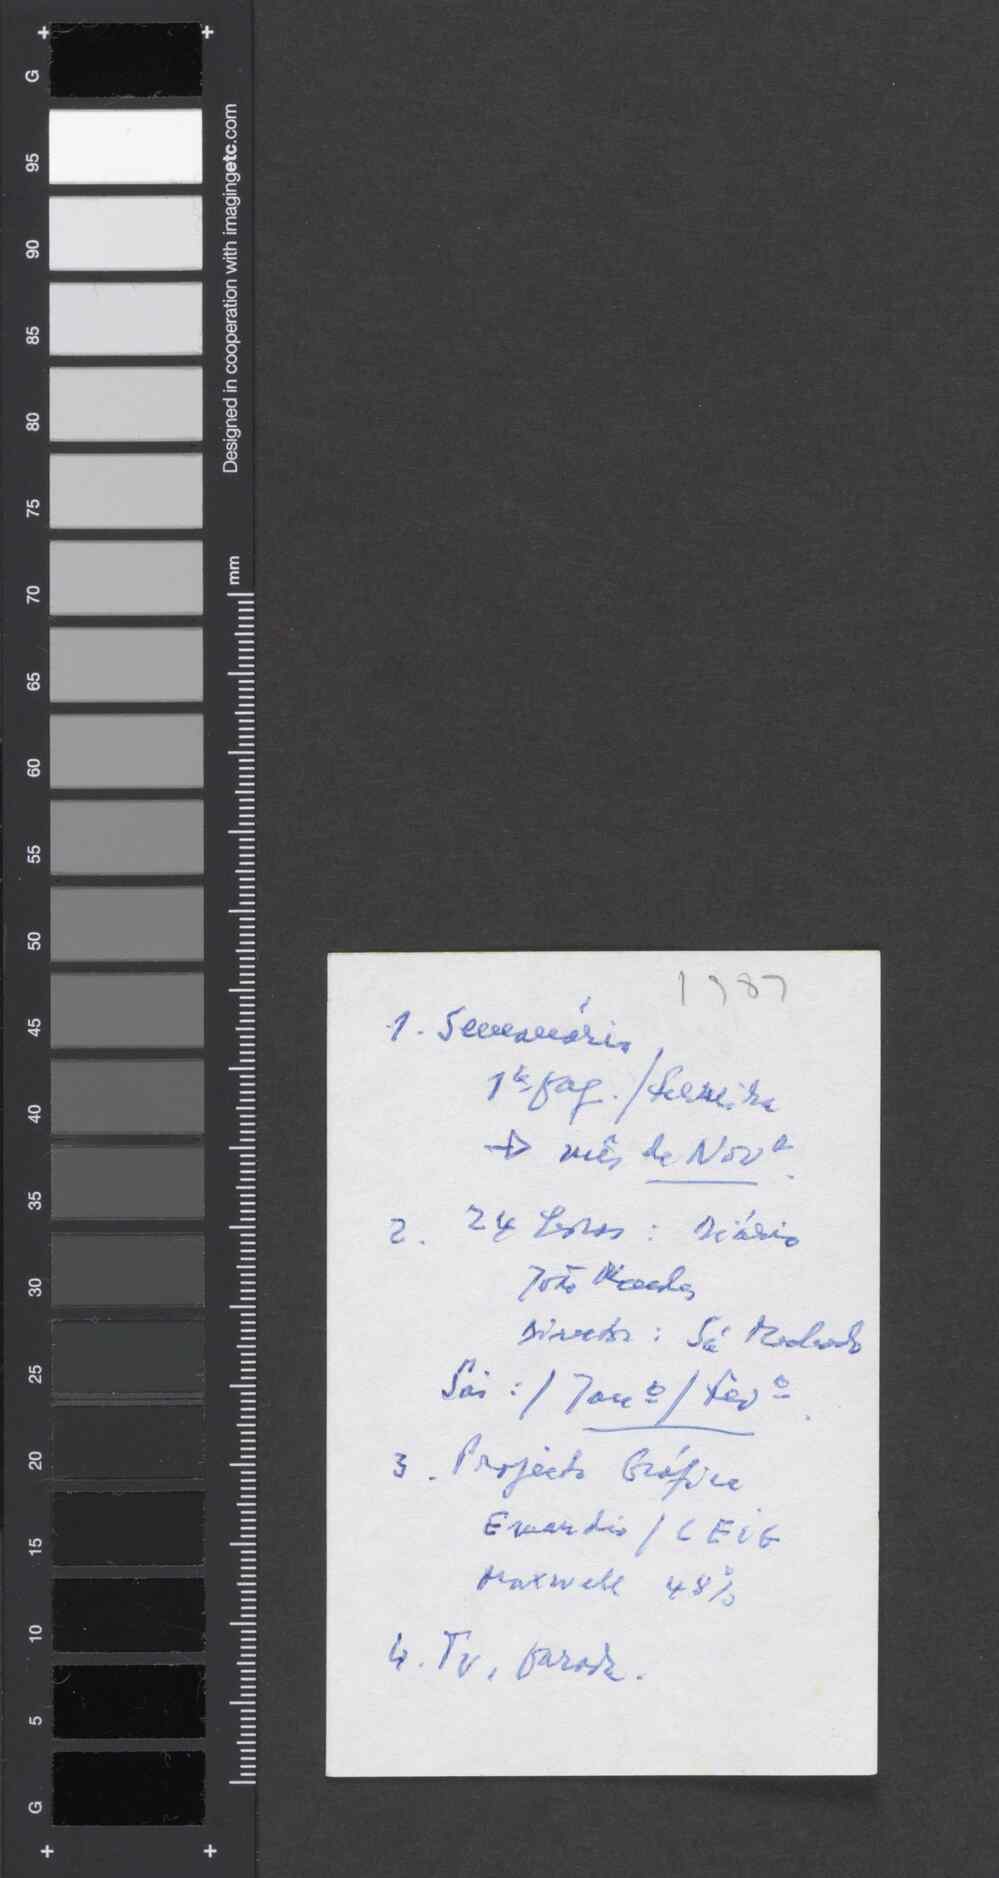 1987
1. Semanário
1ª pág. /
→ mês de Novº.
2. 24 Horas : Diário
João Mendes
Director : Sá Machado
Sai : / Janº / Fevº.
3. Projecto Gráfica
/ CEIG
Maxwell 48%
4. TV, parada.
G
95
90
85
80
75
70
65
60
55
50
45
40
35
30
25
20
15
10
5
G
Designed in cooperation with imagingetc.com
mm